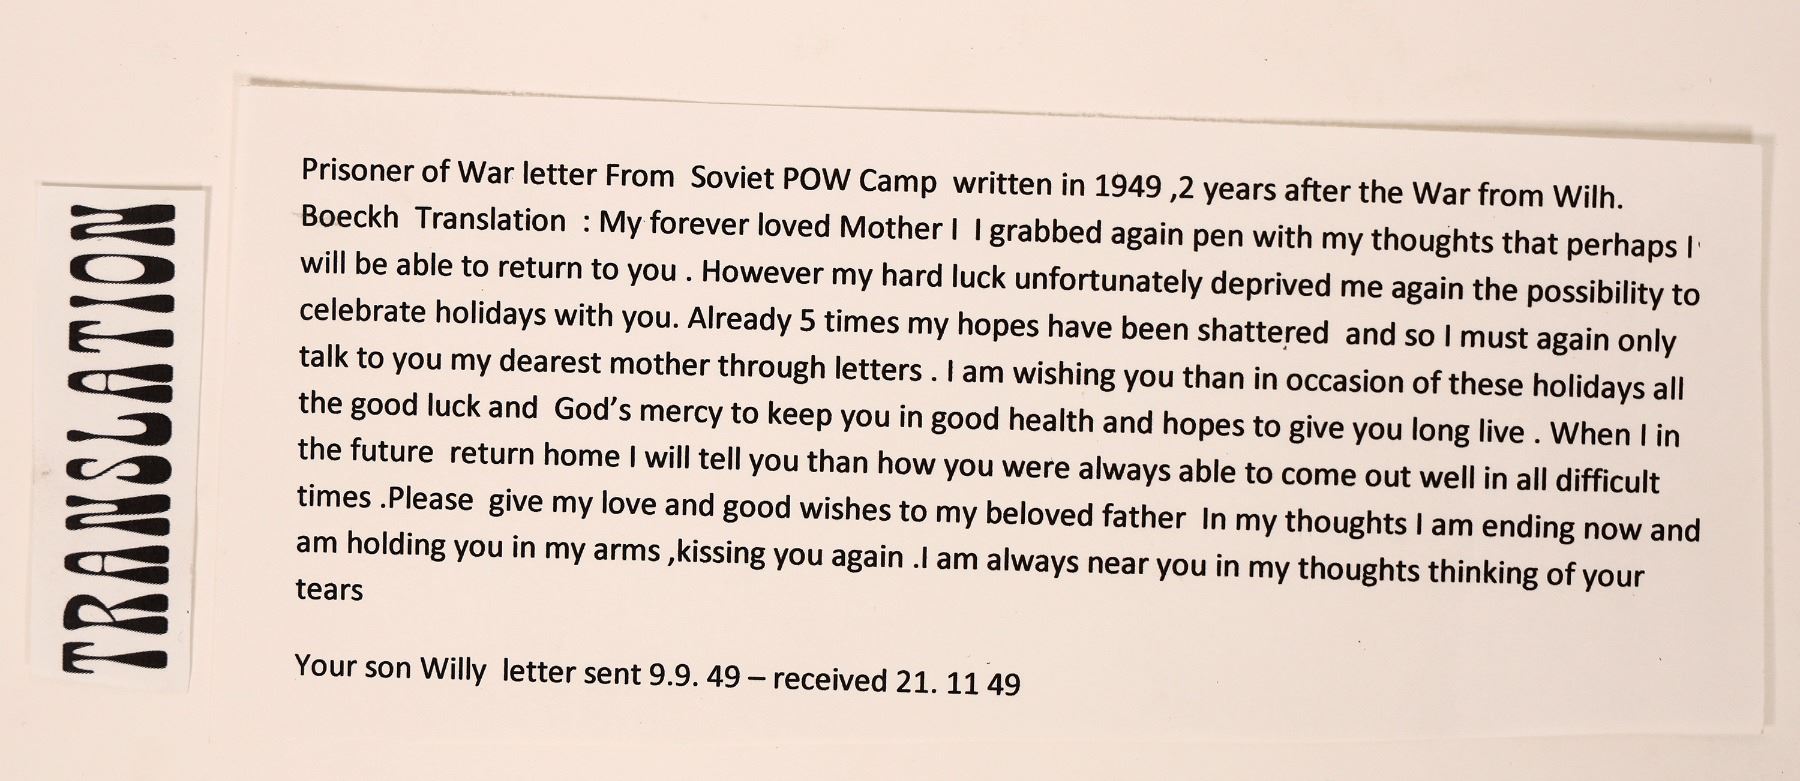 TRANSLATION
Prisoner of War letter From Soviet POW Camp written in 1949 ,2 years after the War from Wilh.
Boeckh Translation : My forever loved Mother I I grabbed again pen with my thoughts that perhaps I
will be able to return to you . However my hard luck unfortunately deprived me again the possibility to
celebrate holidays with you. Already 5 times my hopes have been shattered and so I must again only
talk to you my dearest mother through letters . I am wishing you than in occasion of these holidays all
the good luck and God's mercy to keep you in good health and hopes to give you long live . When I in
the future return home I will tell you than how you were always able to come out well in all difficult
times .Please give my love and good wishes to my beloved father In my thoughts I am ending now and
am holding you in my arms ,kissing you again .I am always near you in my thoughts thinking of your
tears
Your son Willy letter sent 9.9. 49 – received 21. 11 49